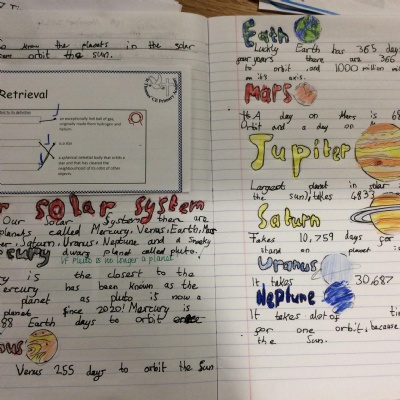 know the planets in the solar
orbit the sun.
Retrieval
to its definition
an exceptionally hot ball of gas,
originally made from hydrogen and
helium.
is a star
a spherical celestial body that orbits a
star and that has cleared the
neighbourhood of its orbit of other
objects.
solar system
Our solar System there are
planets, called Mercury, Venus, Earth, Mars
Saturn, Uranus, Neptune and a smoky
dwarf planet called pluto.
pluto is no longer a planet
is the closest to the
ercury has been known as the
planet as pluto is now a
planet since 2020! Mercury is
88 Earth days to orbit
Venus 255 days to orbit the Sun
Eath
Luckly Earth has 365 days
years there are 366
to orbit and 1000 million
on its axis.
Mars
A day on Mars is 68
Orbit and a day on
Jupiter
Largest planet in solar
the sun, takes 4833
Saturn
Takes 10,759 days for
stand on planet
Uranus
It takes 30,687
Neptune
It takes alot of
for one orbit, because
the Sun.